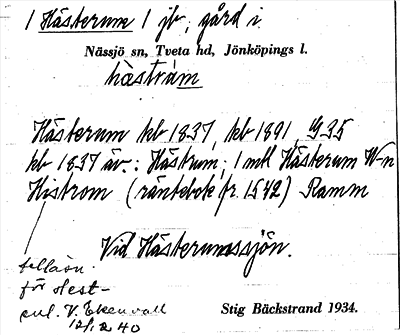 1 Hästerum 1 jb, gård i
Nässjö sn, Tveta hd, Jönköpings l.
hàstràm
Hästerum kb 1837, kb 1891, G35
kb 1837 äv.: Hästrum; 1 mtl Hästerum W-n
Histrom (räntebok fr. 1542) Ramm
Vid Hästerumssjön.
för Hest-
enl. V. Ekenvall
12/12 40
Stig Bäckstrand 1934.